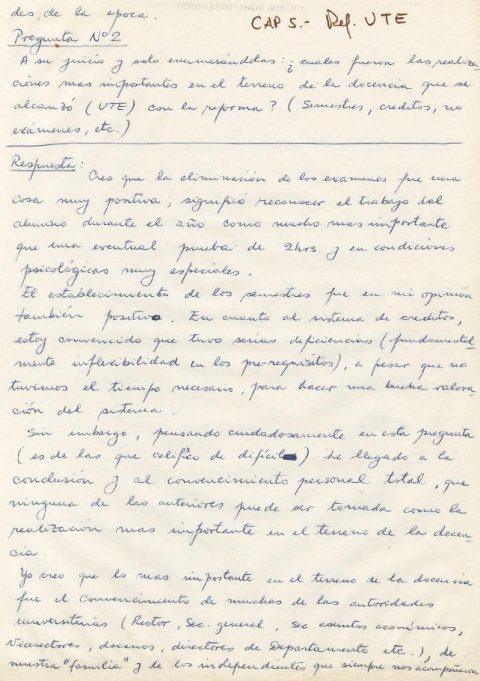 des, de la epoca.
CAP 5.- Ref. UTE
Pregunta Nº2
A su juicio y solo enumerándolas: ¿cuales fueron las realiza-
ciones mas importantes en el terreno de la docencia que se
alcanzó (UTE) con la reforma? (Semestres, creditos, no
exámenes, etc.)
Respuesta:
Creo que la eliminación de los examenes fue una
cosa muy positiva; significó reconocer el trabajo del
alumno durante el año como mucho mas importante
que una eventual prueba de 2hrs y en condiciones
psicológicas muy especiales.
El establecimiento de los semestres fue en mi opinión
también positivo. En cuanto al sistema de creditos,
estoy convencido que tuvo serias deficiencias (fundamental-
mente inflexibilidad en los pre-requisitos), a pesar que no
tuvimos el tiempo necesario, para hacer una buena valora-
ción del sistema.
Sin embargo, pensando cuidadosamente en esta pregunta
(es de las que califico de difícil) he llegado a la
conclusión y al convencimiento personal total, que
ninguna de las anteriores puede ser tomada como la
realización mas importante en el terreno de la docen-
cia.
Yo creo que lo mas importante en el terreno de la docencia
fue el convencimiento de muchas de las autoridades
universitarias (Rector, Sec. general, Sec asuntos económicos,
Vicerectores, decanos, directores de Departamento etc.), de
nuestra "familia" y de los independientes que siempre nos acompañaron